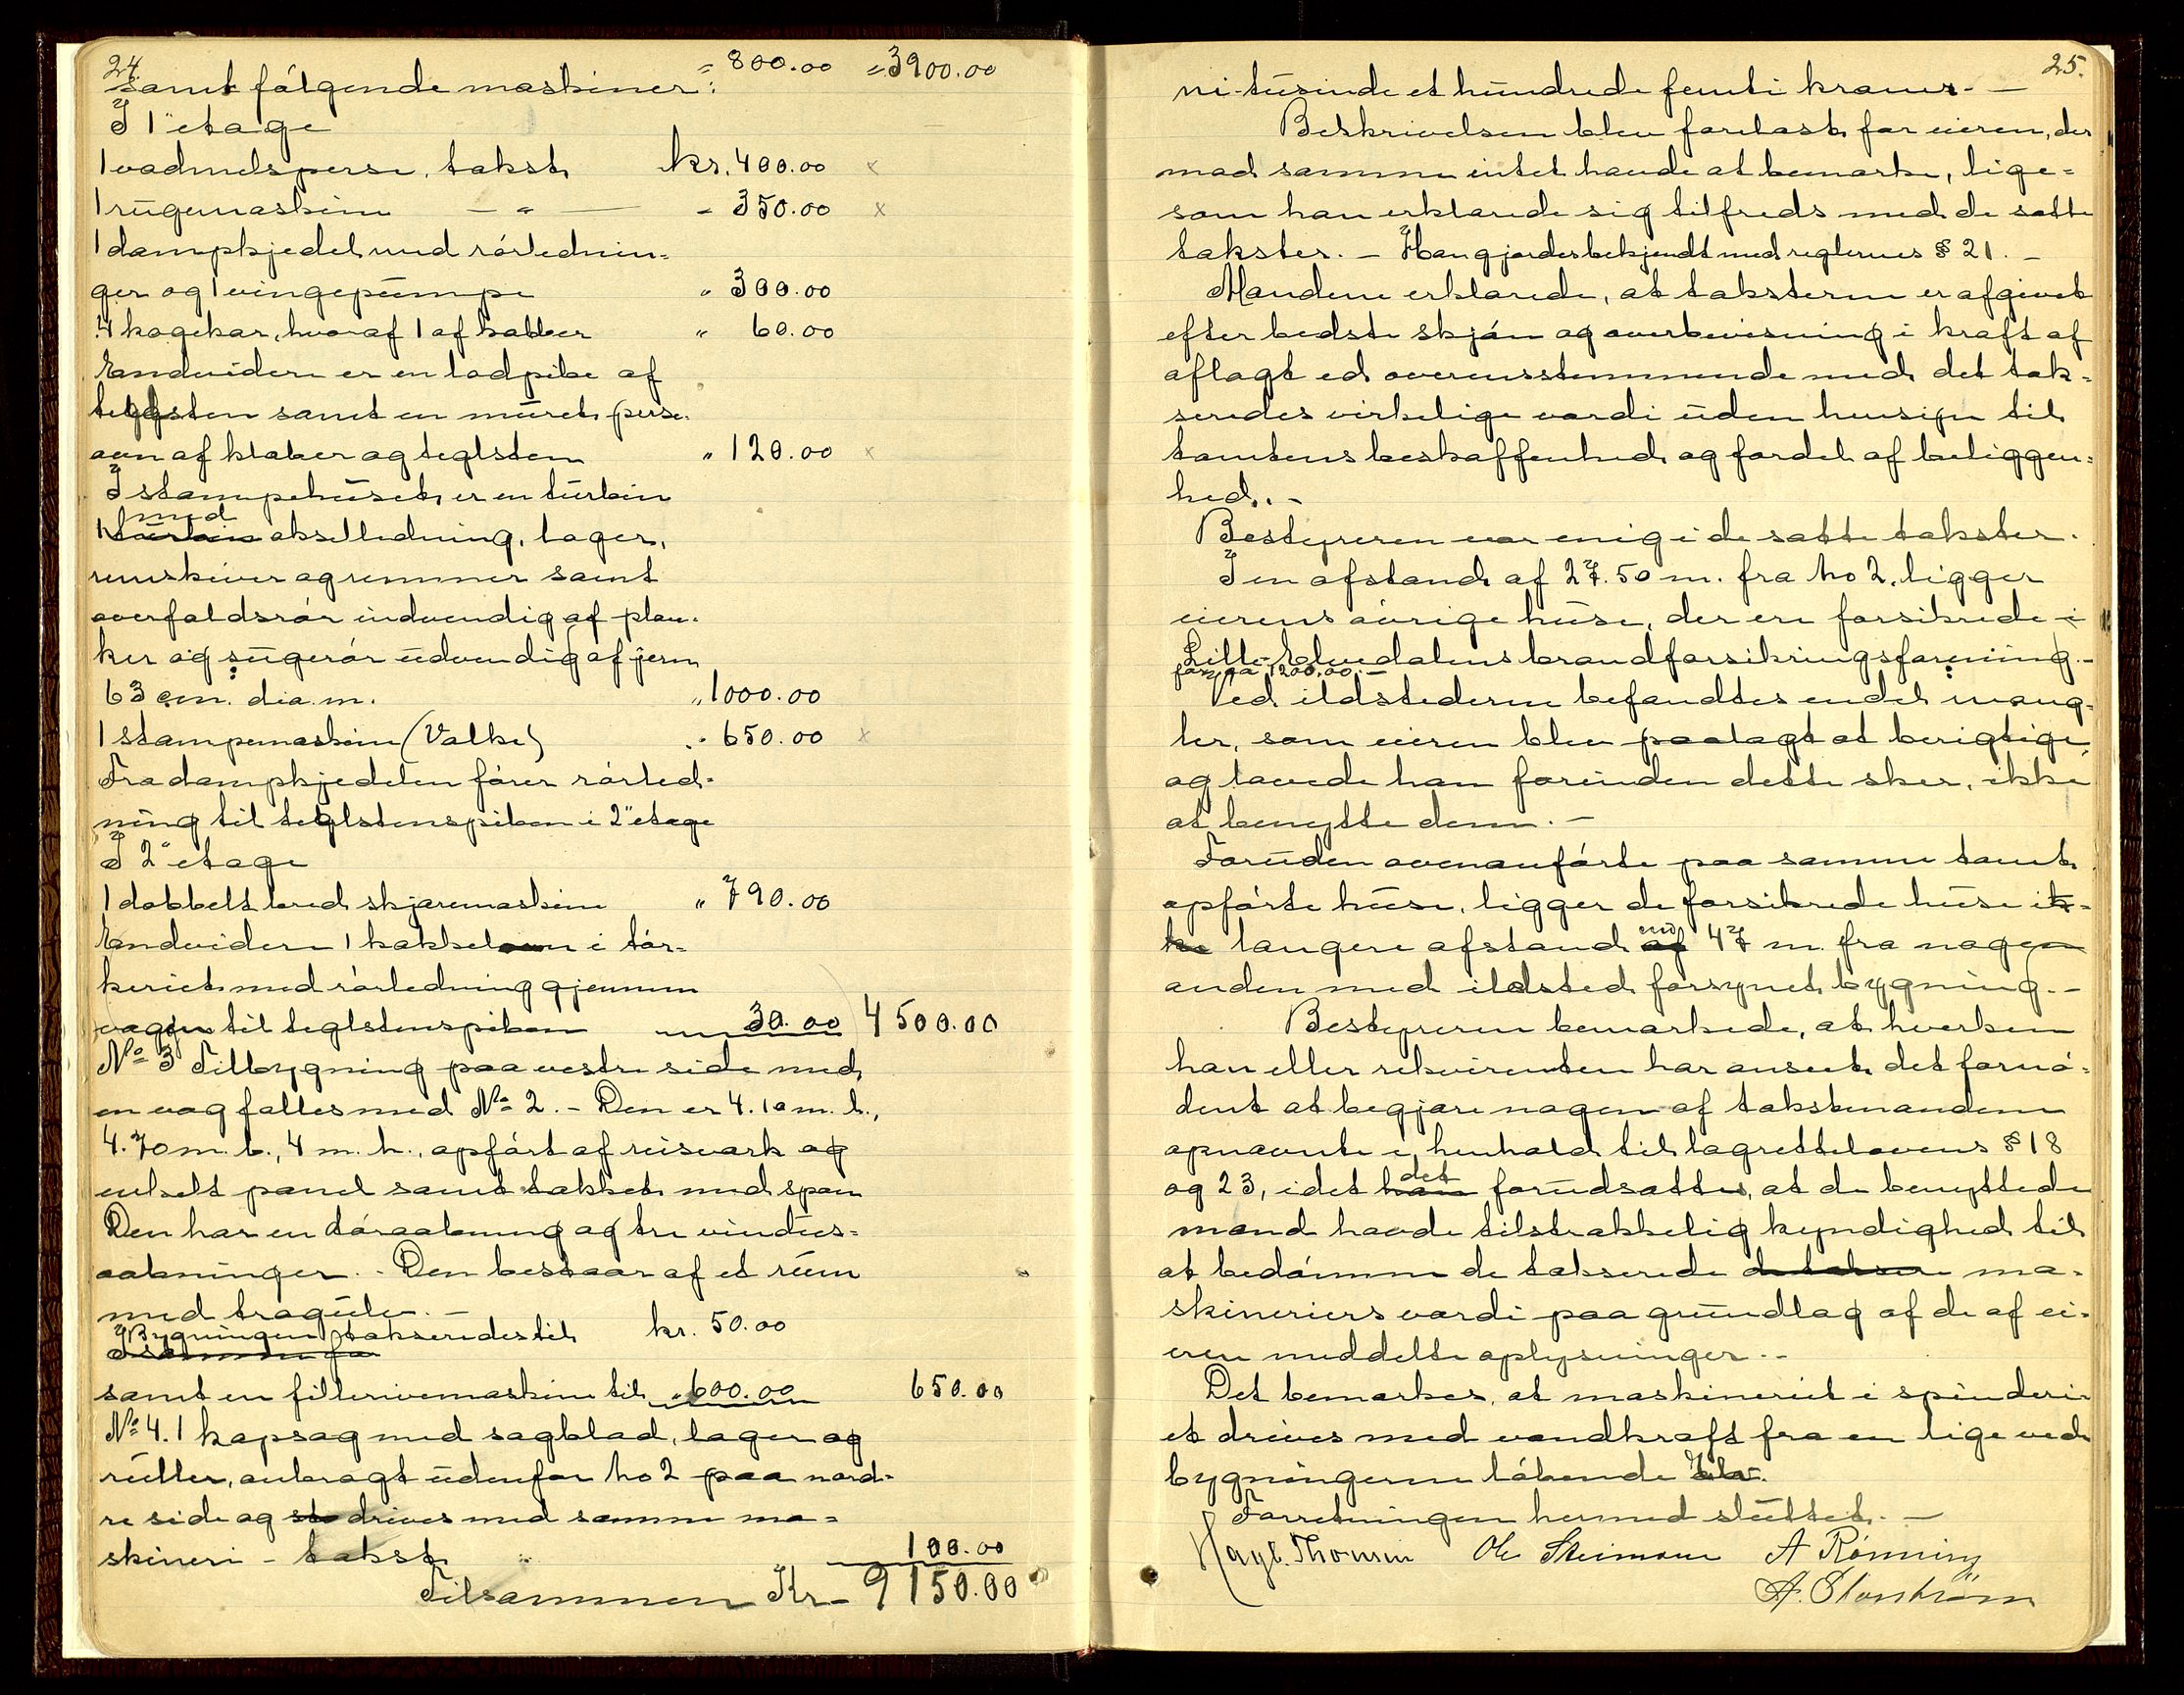 24.
samt følgende maskiner: " 800.00 " 3900.00
I 1" etage
1 vadmelsperse, takst kr. 400.00 x
1 rugemaskine — " — - 350.00 x
1 dampkjedel med rørlednin-
ger og 1 vingepumpe " 300.00
4 kogekar, hvoraf 1 af kobber " 60.00
Endvidere er en lodpibe af
teglsten samt en muret perse-
ovn af kleber og teglsten " 120.00 x
I stampehuset er en turbin
med
1 turbin akselledning, lager,
remskiver og remmer samt
overfaldsrør indvendig af plan-
ker og sugerør udvendig af jern
63 cm. dia.m. " 1000.00
1 stampemaskine (Valke) " 650.00 x
Fra dampkjedelen fører rørled-
ning til teglstenspiben i 2" etage
I 2" etage
1 dobbelt bred skjæremaskine " 790.00
Endvidere 1 kakkelovn i tør-
keriet med rørledning gjennem
væggen til teglstenspiben 30.00 4500.00
No 3 Tilbygning paa vestre side med
en væg fælles med No 2. - Den er 4.10 m. l.,
4.70 m. b., 4 m. h., opført af reisverk og
enkelt panel samt tækket med spon
Den har en døraabning og tre vindus-
aabninger. - Den bestaar af et rum
med trægulv. -
Bygningen taksseredes til kr. 50.00
samt en fillerivemaskine til " 600.00 650.00
No 4. 1 kapsag med sagblad, lager og
ruller, anbragt udenfor No 2 paa nord-
re side og sto drives med samme ma-
skineri - takst " 100.00
Tilsammen Kr - 9150.00
25.
ni-tusinde et hundrede femti kroner. -
Beskrivelsen blev forelæst for eieren, der
mod samme intet havde at bemærke, lige-
som han erklærede sig tilfreds med de satte
takster. - Han gjordes bekjendt med reglernes § 21. -
Mændene erklærede, at taksterne er afgivet
efter bedste skjøn og overbevisning i kraft af
aflagt ed overensstemmende med det tak-
seredes virkelige værdi uden hensyn til
tomtens beskaffenhed og fordel af beliggen-
hed. -
Bestyreren var enig i de satte takster.
I en afstand af 27.50 m. fra No 2, ligger
eierens øvrige huse, der ere forsikrede i
Lille-Elvedalens brandforsikringsforening. -
for kr 1200.00. -
Ved ildstederne befandtes endel mang-
ler, som eieren blev paalagt at berigtige,
og lovede han forinden dette sker, ikke
at benytte dem. -
Foruden ovenanførte paa samme tomt
opførte huse, ligger de forsikrede huse ik-
end
ke længere afstand af 47 m. fra nogen
anden med ildsted forsynet bygning. -
Bestyreren bemærkede, at hverken
han eller rekvirenten har anseet det fornø-
dent at begjære nogen af takstmændene
opnævnte i henhold til lagrettelovens § 18
det
og 23, idet han forudsattes, at de benyttede
mænd havde tilstrækkelig kyndighed til
at bedømme de takserede de taksere ma-
skineriers værdi paa grundlag af de af ei-
eren meddelte oplysninger. -
Det bemærkes, at maskineriet i spinderi-
et drives med vandkraft fra en lige ved
bygningerne løbende elv.
Forretningen hermed sluttet. -
Hagb. Thomsen Ole Steimoen A Rønning